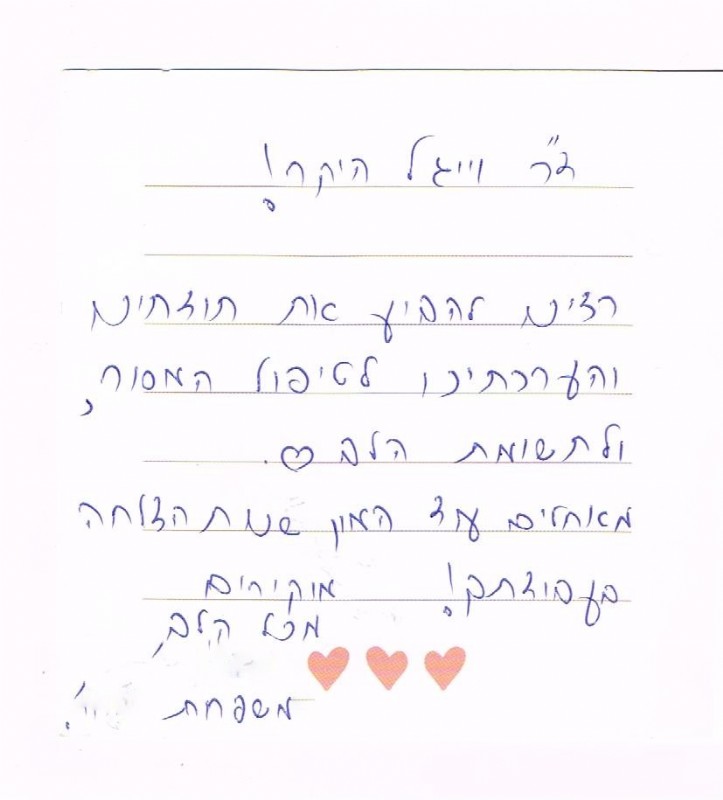 ד"ר וייגל היקר!
רצינו להביע את תודתינו
והערכתינו לטיפול המסור,
ולתשומת הלב ♡.
מאחלים עוד המון שנות הצלחה
בעבודתך! מוקירים
מכל הלב,
משפחת